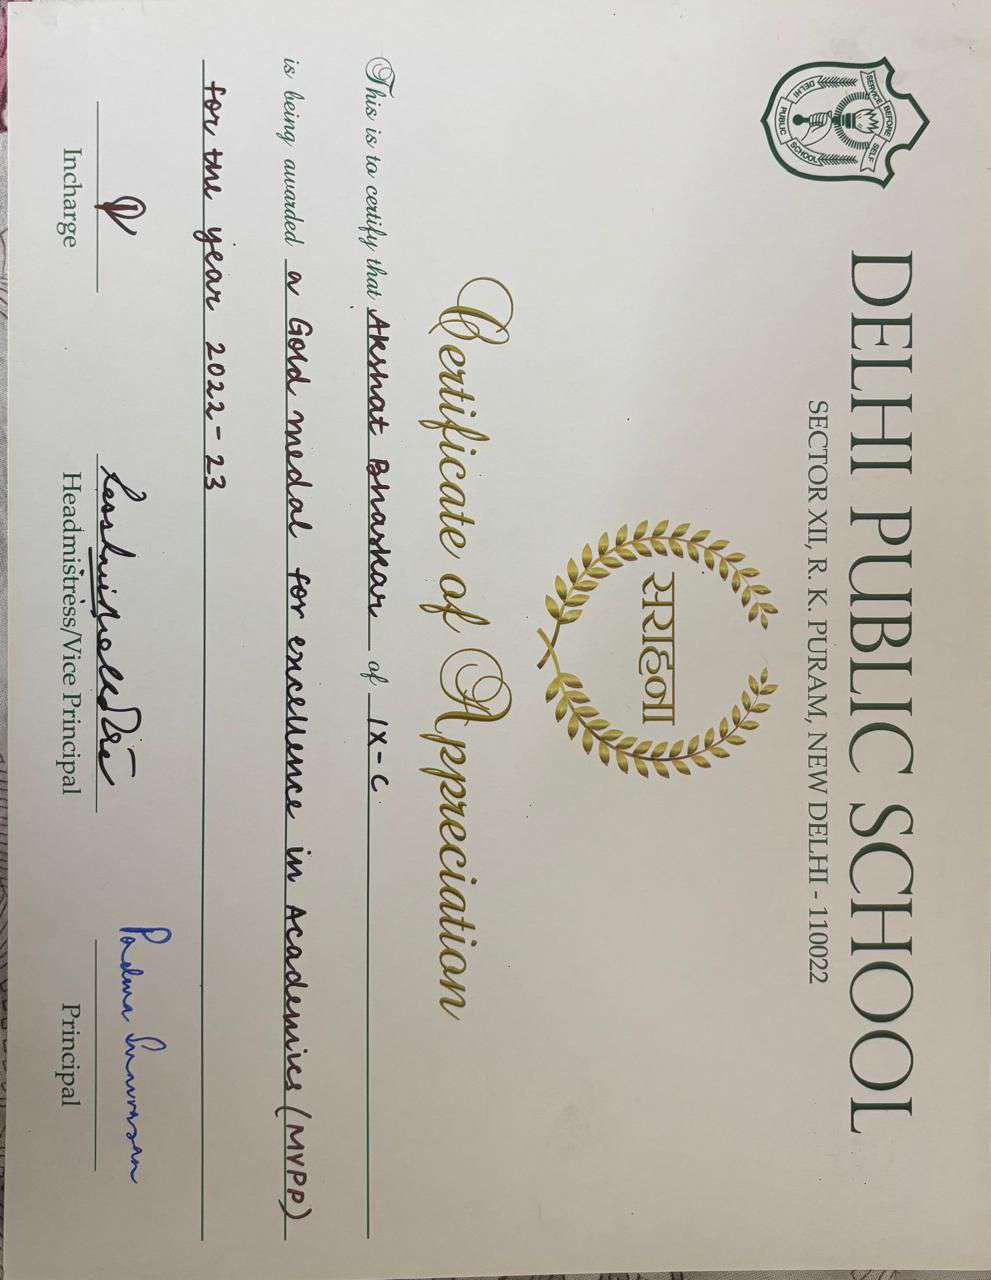 SERVICE BEFORE SELF
DELHI PUBLIC SCHOOL
DELHI PUBLIC SCHOOL
SECTOR XII, R. K. PURAM, NEW DELHI - 110022
सराहना
Certificate of Appreciation
This is to certify that Akshat Bhaskar of IX-C
is being awarded a Gold medal for excellence in Academics (MVPP)
for the year 2022-23
Padma Srinivasan
Incharge Headmistress/Vice Principal Principal